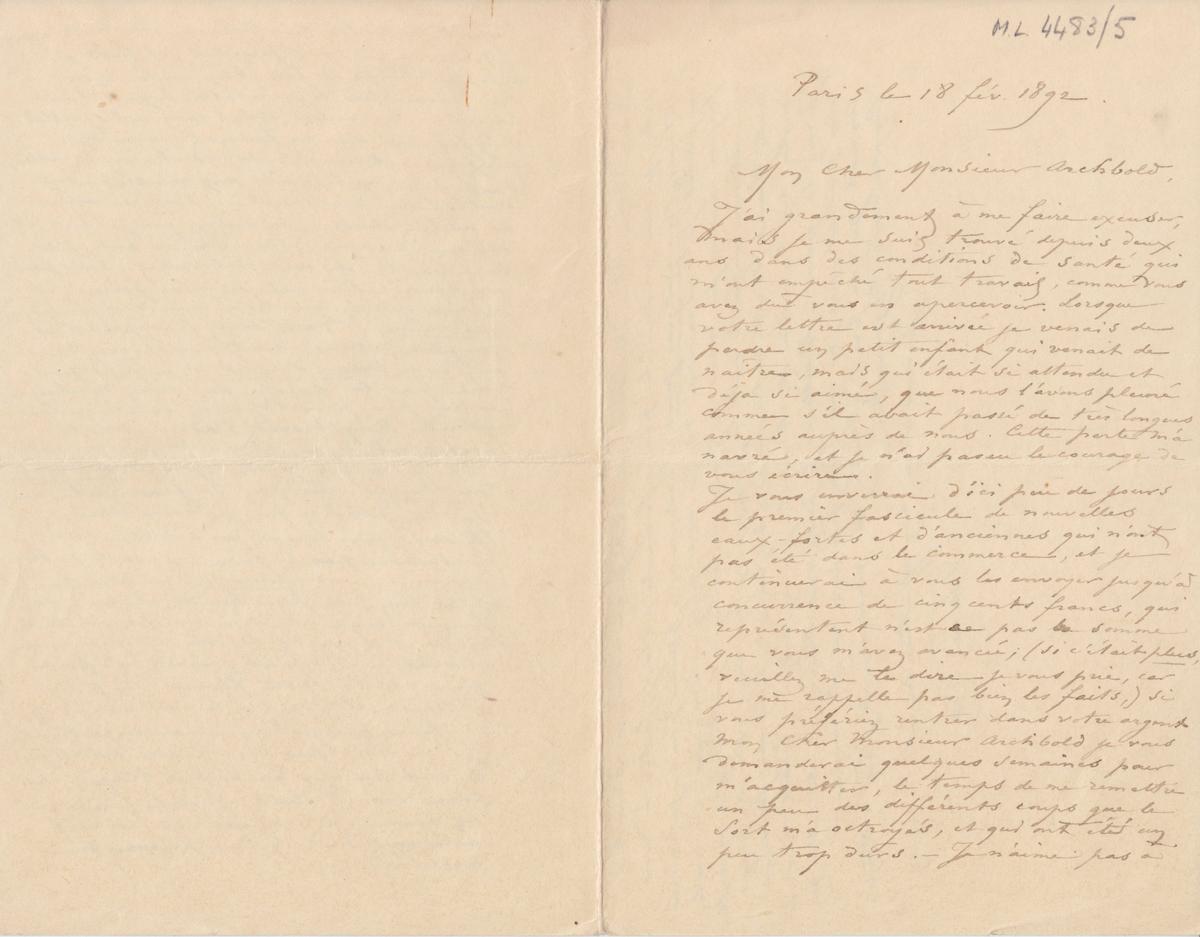 M.L. 4483/5
Paris le 18 fév. 1892.
Mon Cher Monsieur Archbold,
J'ai grandement à me faire excuser,
mais je me suis trouvé depuis deux
ans dans des conditions de santé qui
m'ont empêché tout travail, comme vous
avez dû vous en apercevoir. Lorsque
votre lettre est arrivée je venais de
perdre un petit enfant qui venait de
naître, mais qui était si attendu et
déja si aimé, que nous l'avons pleuré
comme s'il avait passé de très longues
années auprès de nous. Cette perte m'a
navré, et je n'ai pas eu le courage de
vous écrire.
Je vous enverrai d'ici peu de jours
le premier fascicule de nouvelles
eaux-fortes et d'anciennes qui n'ont
pas été dans le commerce, et je
continuerai à vous les envoyer jusqu'à
concurrence de cinq cents francs, qui
représentent n'est ce pas la somme
que vous m'avez avancée; (si c'était plus,
veuillez me le dire je vous prie, car
je me rappelle pas bien les faits,) si
vous préfériez rentrer dans votre argent
mon Cher Monsieur Archbold je vous
demanderai quelques semaines pour
m'acquitter, le temps de me remettre
un peu des différents coups que le
Sort m'a octroyés, et qui ont étés un
peu trop durs. — Je n'aime pas à